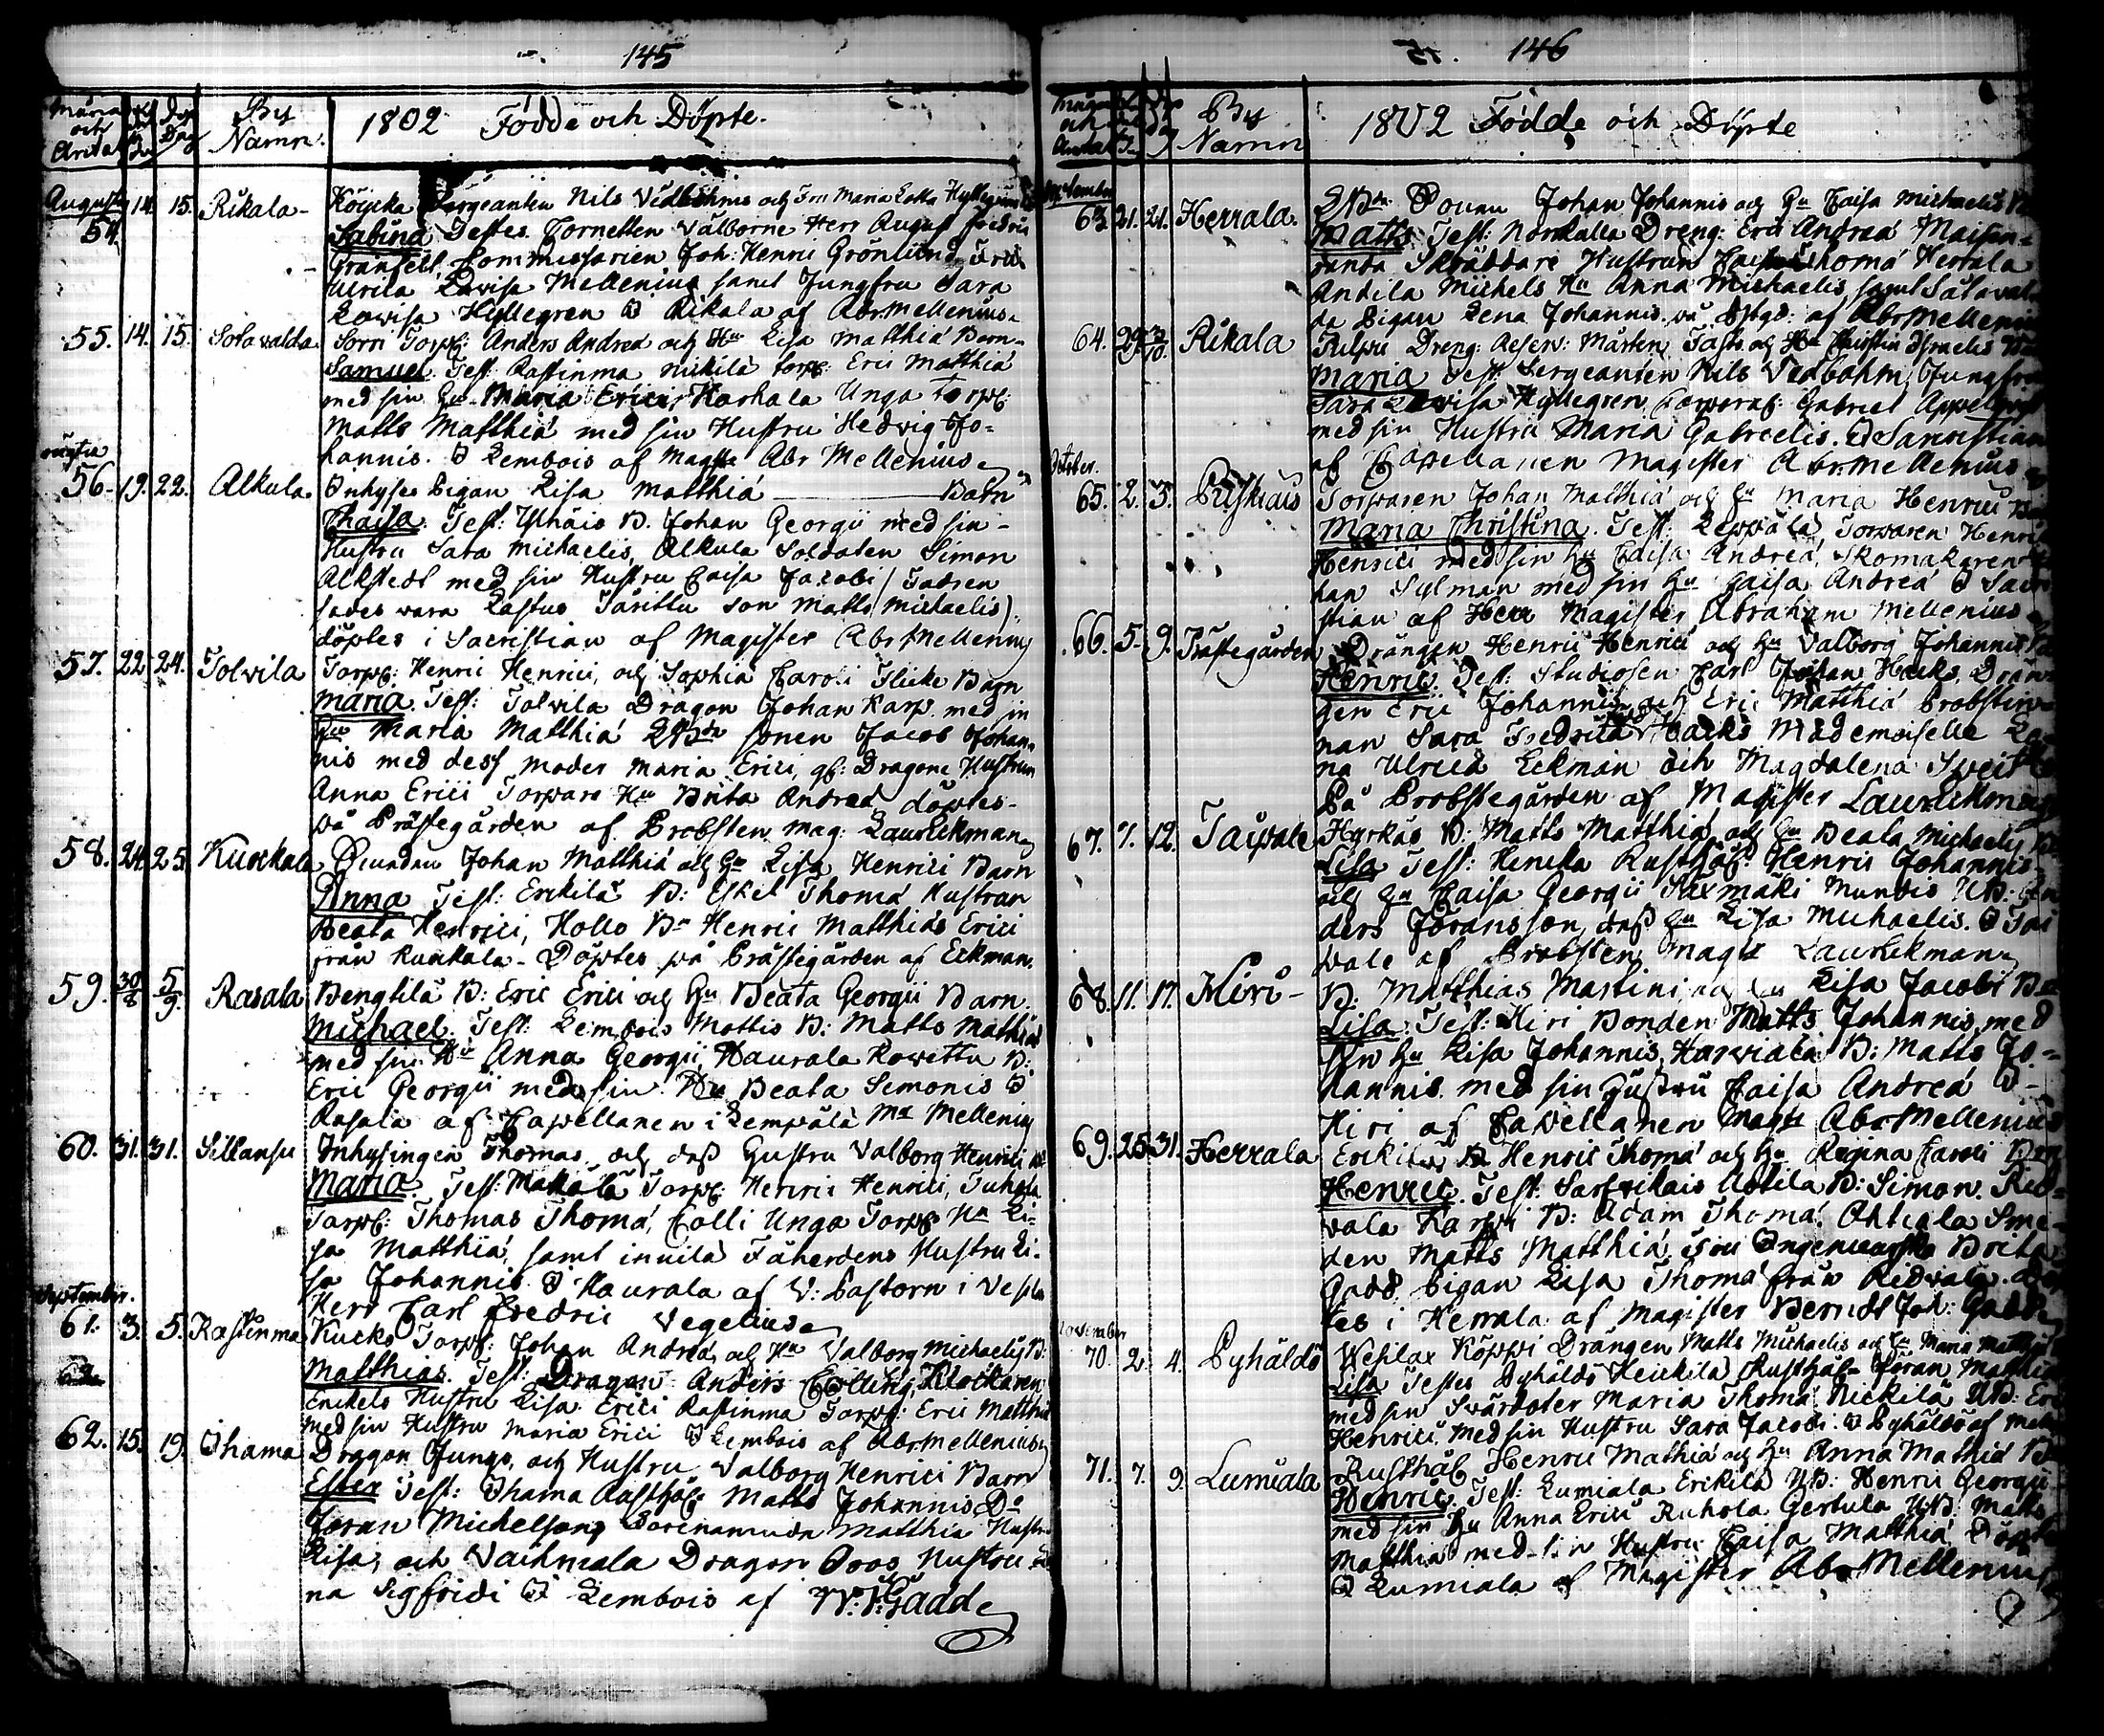 145
Måna och Antal
Föd
Döp Dag
By Namn.
1802 Födde och Döpte.
Augusti 54. 14. 15. Rikala
Köijcka Sergeanten Nils Vedbohms och Fru Maria Lotta Hyllegrens
Sabina Testes Cornetten Välborne Herr August Fredric
Granfelt, Commissarien Joh: Henric Grönlund Fru
Ulrica Lovisa Mellenius samt Jungfru Sara
Lovisa Hyllegren I Rikala af Abr Mellenius.
55. 14. 15. Sotavalda
Sorri Torp: Anders Andreæ och Hu Lisa Matthiæ Barn
Samuel Test: Rastinma Nickilä torp: Eric Matthiæ
med sin Hu Maria Erici, Karhala Unga Torp:
Matts Matthiæ med sin Hustru Hedvig Jo-
hannis. I Lembois af Mag Abr Mellenius
oägta
56. 19. 22. Alkula
Inhyses Pigan Lisa Matthiæ Barn
Chaisa. Test: B. Johan Georgii med sin
Hustru Sara Michaelis, Alkula Soldaten Simon
Alkstedt med sin Hustru Caisa Jacobi / Fadren
sades vara Lastus Tarittu son Matts Michaelis)
döptes i Sacristian af Magister Abr Mellenius
57. 22 24. Tolvila
Torp: Henric Henrici, och Sophia Caroli Flicke Barn
Maria. Test: Tolvila Dragon Johan Karp med sin
Hu Maria Matthiæ sonen Jacob Johan-
nis med dess moder Maria Erici, gl: Dragons Hustrun
Anna Erici Torpare Hu Brita Andreæ döptes
på Prästegården af Probsten Mag: Laur Eckman
58. 24. 25. Kuockala
Johan Matthiæ och Hu Lisa Henrici Barn
Anna Test: Erckilä B: Eskel Thomæ Hustrun
Beata Henrici, Hollo Bn Henric Matthias Erici
från Kuockala Döptes på Prästegården af Eckman.
59. 30/8 5/9. Rasala
Bengtilä B: Eric Erici och Hu Beata Georgii Barn.
Michael. Test: Lembois Mottis B: Matts Mathiæ
med sin Hu Anna Georgii, Haurala Rowettu B:
Eric Georgii med sin Hu Beata Simonis I
Rasala af Capellanen i Lempälä Mr Mellenius
60. 31. 31. Sillansu
Inhysingen Thomas och dess Hustru Valborg Henrici
Maria. Test: Makala Torp: Henric Henrici, Juhola
Torp: Thomas Thomæ, Colli Unga Torp: Hu Li-
sa Matthiæ, samt inuila Fäherdens Hustru Li-
sa Johannis I Haurala af V: Pastorn i Vesilax
Herr Carl Fredric Vegelius
September.
61. 3. 5. Rastinma
Kucko Torp: Johan Andreæ och Hu Valborg Michaelis B:
Matthias. Test: Dragon Anders Klockaren
Enckels Hustru Lisa Erici Rastinma Torp: Eric Matthiæ
med sin Hustru Maria Erici I Lembois af Abr Mellenius
62. 15. 19. Ihama
Dragon Jungs, och Hustru Valborg Henrici Barn
Ester Test: Ihama Rusthål: Matts Johannis
Jöran Michelsons Matthiæ Hustru
Lisa, och Vaihmala Dragon Oros Hustru An
na Sigfridi I Lembois af N: J: Gadd
146
By Namn
1802 Födde och Döpte
September
63 21. 21. Herrala.
Johan Johannis och Hu Caisa Michaelis
Matts Test: Dreng: Eric Andreæ Maisen-
randa Skräddare Hustrun Caisa Thomæ Herrala
Andila Michels Hu Anna Michaelis samt Sätavel-
da Pigan Lena Johannis på Pstgd: af Abr Mellenius
64. 29/9 3/10. Rikala
Dreng: Reserv: Mårten och Hu Christin Israelis
Maria Test: Sergeanten Nils Vedbohm, Jungfru
Sara Lovisa Hyllegren, Corporal: Gabriel
med sin Hustru Maria Gabrielis. I Sacristian
af Capellanen Magister Abr Mellenius
October.
65. 2. 3. Pyskais
Torparen Johan Matthiæ och Hu Maria Henrici
Maria Christina. Test: Torparen Henric
Henrici med sin Hu Caisa Andreæ, Skomakaren
han Sylman med sin Hu Caisa Andreæ I Sacri
stian af Herr Magister Abraham Mellenius
66. 5. 9. Prästegården
Drängen Henric Henrici och Hu Valborg Johannis
Henric. Test: Studiosen Carl Johan Hacks, Drän-
gen Eric Johannis och Eric Matthiæ Probstin-
nan Sara Fredrica Hacks Mademoiselle
na Ulrica Eckman och Magdalena
På Probstegården af Magister Laur Eckman
67. 7. 12. Taipale
Harkas B: Matts Matthiæ och Hu Beata Michaelis
Lisa Test: Heicka Rusthål: Henric Johannis
och Hu Caisa Georgii Kexmäki
ders Jöransson, dess Hu Lisa Michaelis. I Tai
pale af Probsten Mag Laur Eckman
68. 11. 17. Hiri
B: Matthias Martini och Hu Lisa Jacobi
Lisa. Test: Hiri Bonden Matts Johannis, med
sin Hu Lisa Johannis, Harviala B: Matts Jo-
hannis med sin Hustru Caisa Andreæ I
Hiri af Capellanen Mag Abr Mellenius
69. 25. 31. Herrala
Erckilä B Henric Thomæ och Hu Regina Caroli Barn
Henric. Test: Sarfvikais B: Simon. Red-
vala Karppi B: Adam Thomæ. Ahtiala Sme-
den Matts Matthiæ, Fru Brita
Gadd, Pigan Lisa Thomæ från Redvala. Döp
tes i Herrala af Magister Berndt Joh: Gadd
November
70. 2. 4. Pyhäldö
Wesilax Köppi Drängen Matts Michaelis och Hu Maria Matthiæ
Lisa Testes Pyhäldö Heickilä Rusthål: Jöran Matthiæ
med sin Svärdoter Maria Thomæ Nickilä UB: Eric
Henrici, med sin Hustru Sara Jacobi. I Pyhäldö af
71. 7. 9. Lumiala
Rusthål Henric Mathiæ och Hu Anna Mathiæ B
Henric. Test: Lumiala Erckilä UB: Henric Georgii
med sin Hu Anna Erici Ruhola Gertula UB: Matts
Matthiæ med sin Hustru Caisa Matthiæ. Döpt
I Lumiala af Magister Abr Mellenius